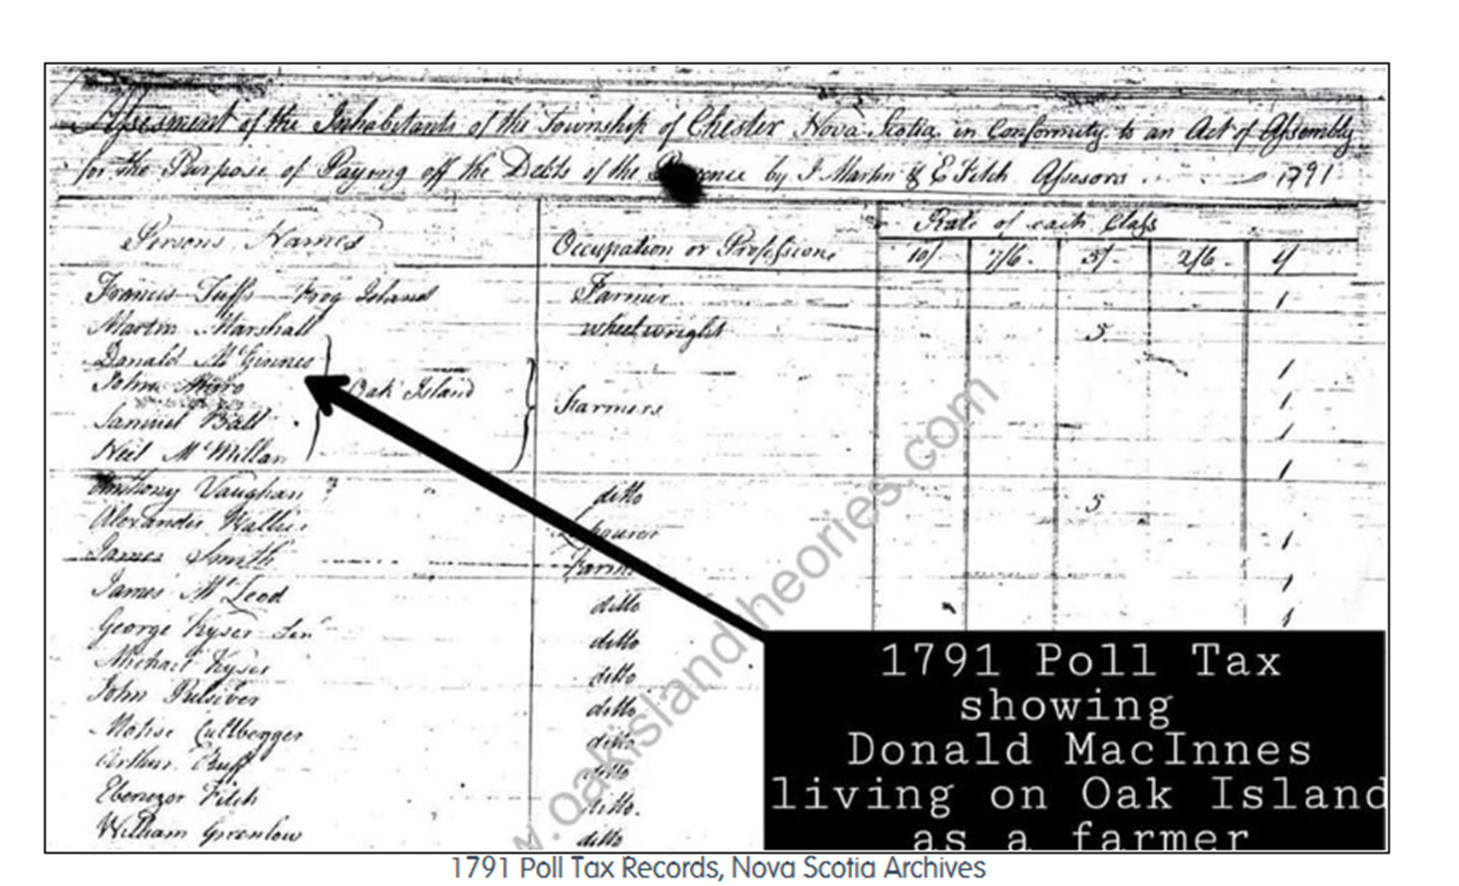 Assessment of the Inhabitants of the Township of Chester Nova Scotia in Conformity to an Act of Assembly
for the Purpose of Paying off the Debts of the by J. Martin & E Fitch Assesors 1791
Persons Names
Occupation or Profession
Rate of each Class
10/ 7/6 5/ 2/6 1/
Francis Tuffs Frog Island Farmer 1
Martin Marshall wheelwright 5
Donald McGinnes 1
John 1
Oak Island
Farmers
Samuel Ball 1
Neil McMillan 1
Anthony Vaughan ditto 5
Alexander 1
James Smith 1
James McLeod ditto 1
George Kyser Sen ditto
Michael Kyser ditto
John Pulsiver ditto
ditto
Arthur ditto
Ebenezer Fitch ditto.
William Greenlow ditto
w.oakislandtheories.com
1791 Poll Tax
showing
Donald MacInnes
living on Oak Island
as a farmer
1791 Poll Tax Records, Nova Scotia Archives